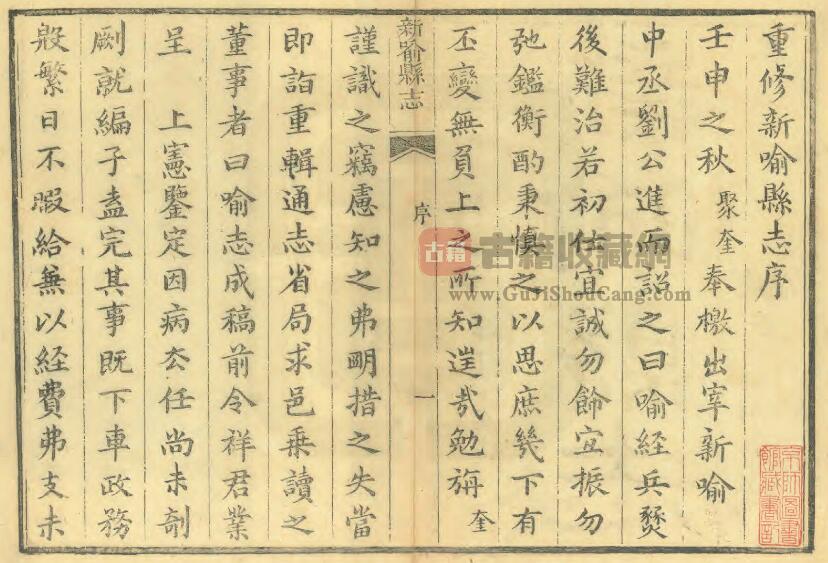 重修新喻縣志序
壬申之秋聚奎奉檄出宰新喻
中丞劉公進而詔之曰喻經兵燹
後難治若初仕宜誠勿餙宜振勿
弛鑑衡酌秉慎之以思庶幾下有
丕變無負上之所知逞哉勉旃奎
新喻縣志
序
一
謹識之竊慮知之弗明措之失當
即詣重輯通志省局求邑乘讀之
董事者曰喻志成稿前令祥君業
呈 上憲鑒定因病厺任尚未剞
劂就編子盍完其事既下車政務
殷繁日不暇給無以経費弗支未
古籍
古籍收藏網
www.GuJiShouCang.com